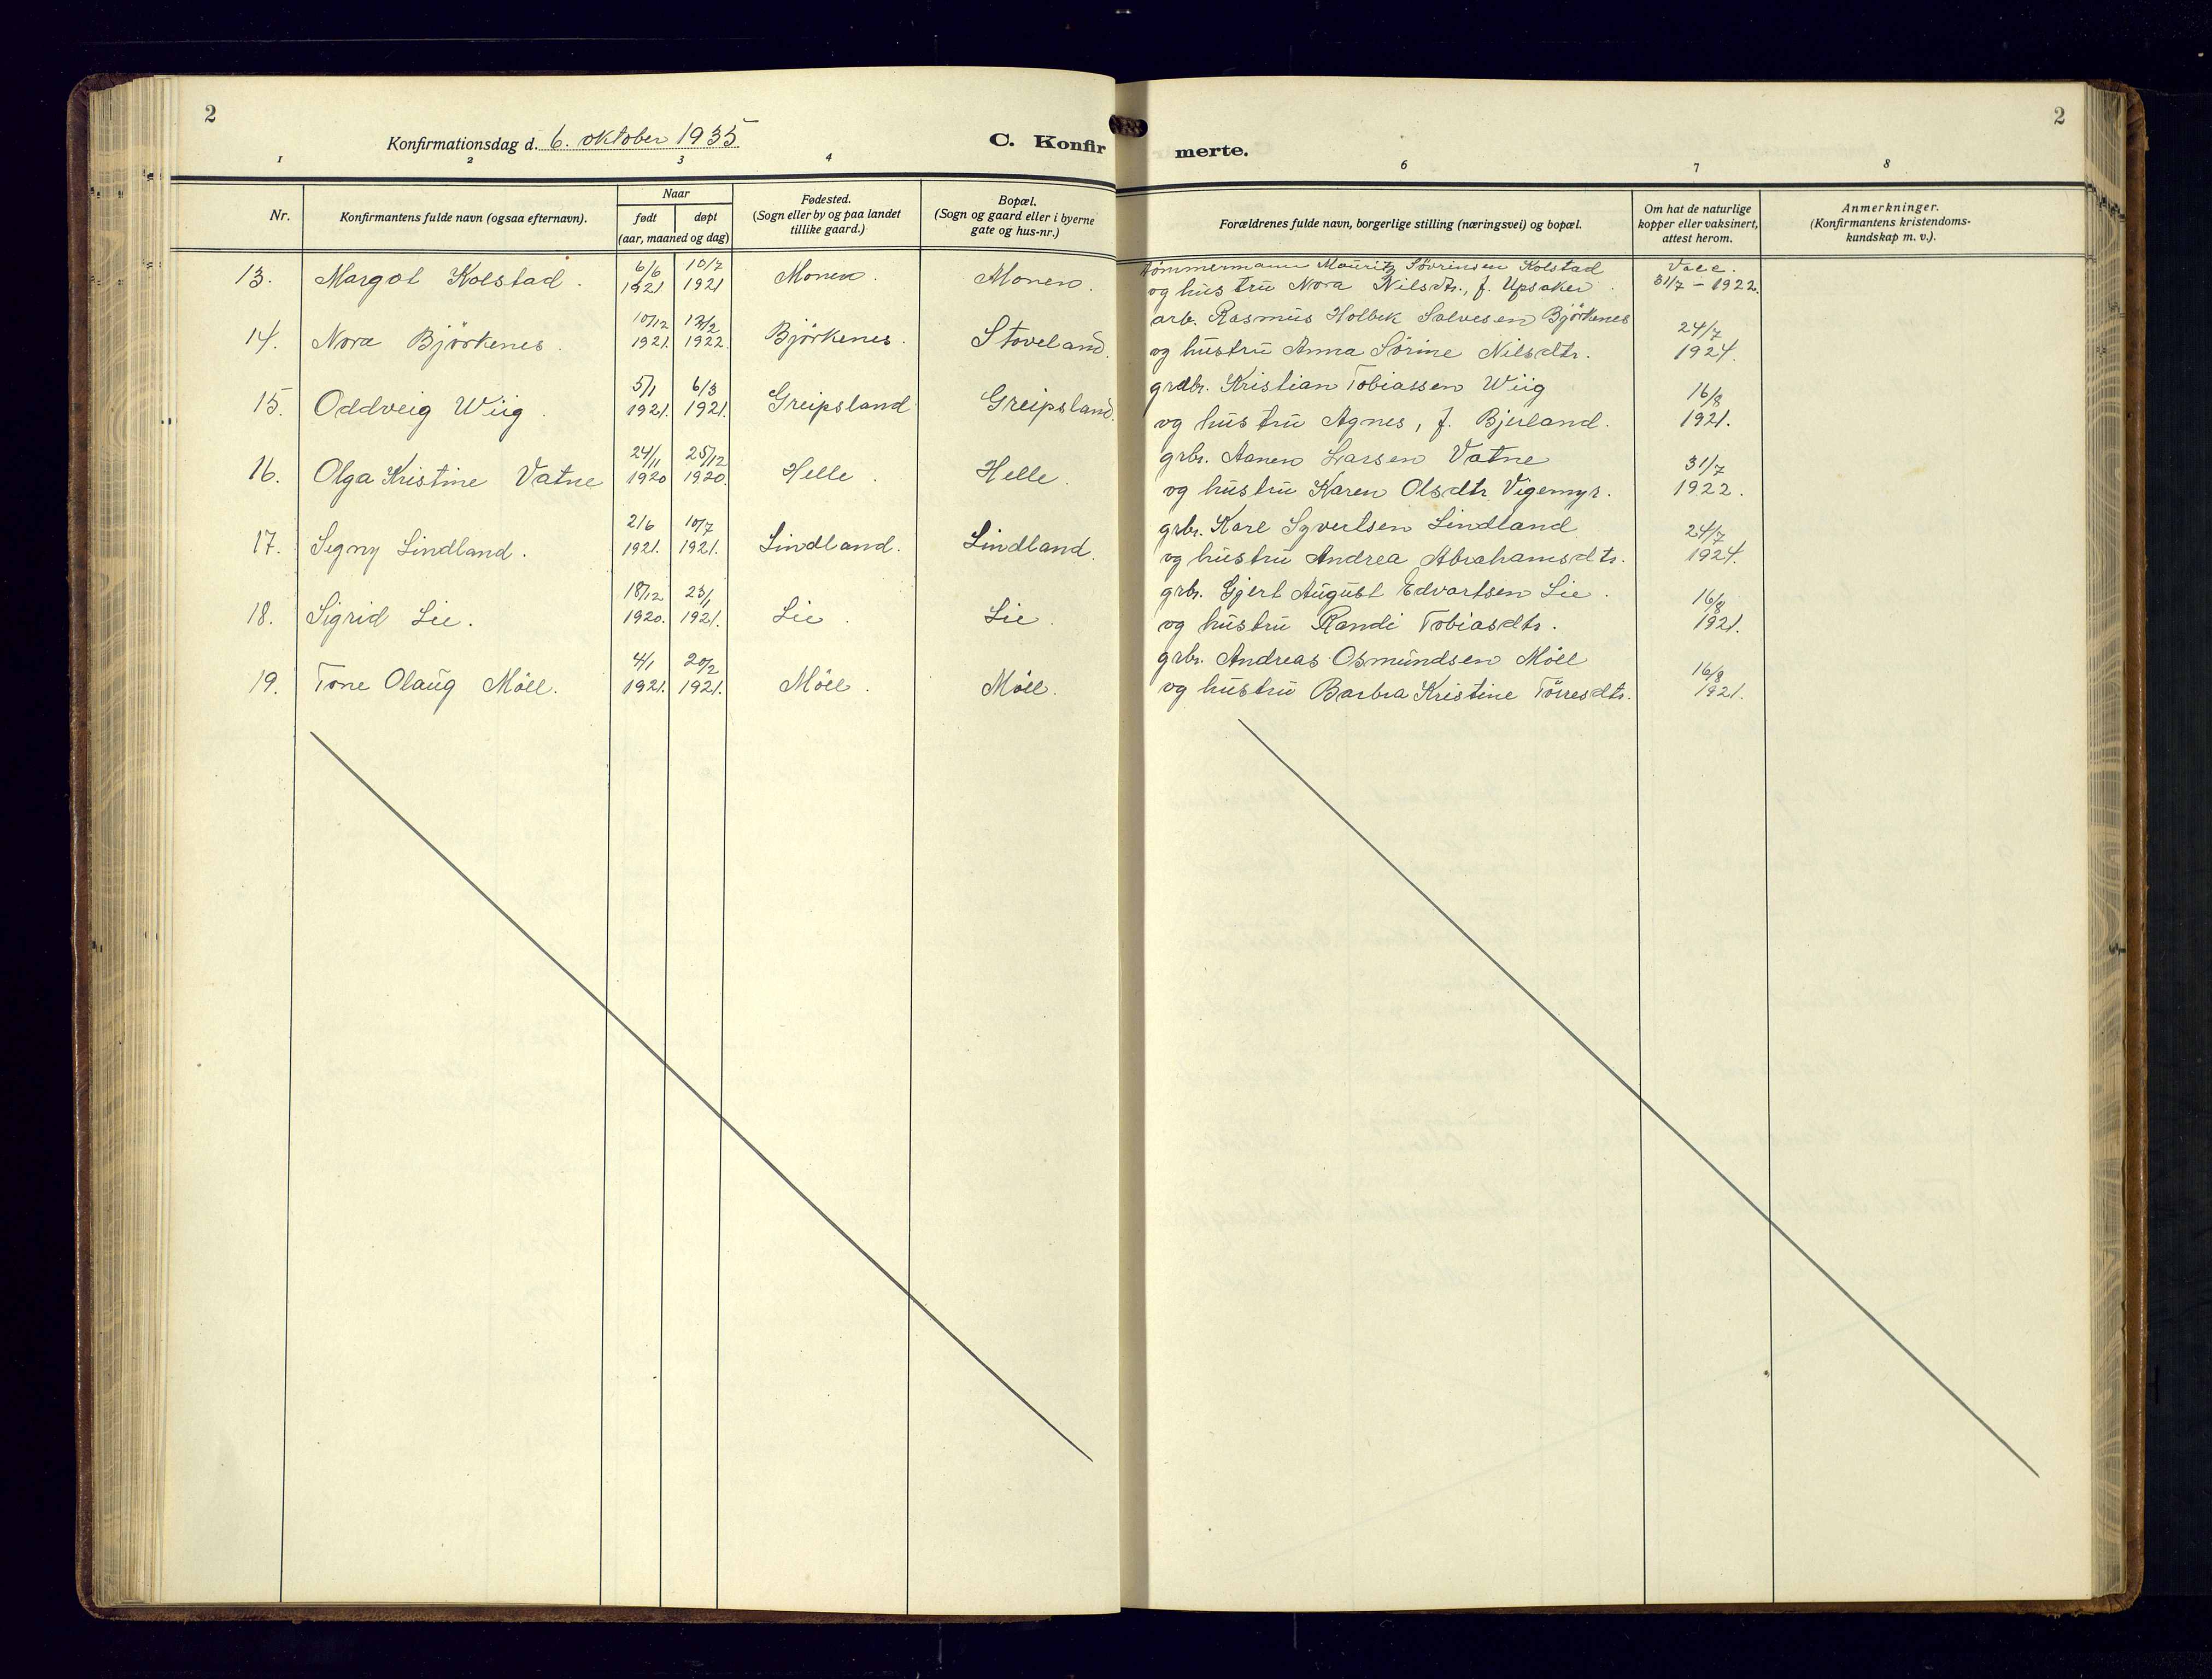 2
Konfirmationsdag d. 6. oktober 1935
C. Konfir
merte.
2
1 2 3 4 6 7 8
Nr.
Konfirmantens fulde navn (ogsaa efternavn).
Naar
født døpt
(aar, maaned og dag)
Fødested.
(Sogn eller by og paa landet
tillike gaard.)
Bopæl.
(Sogn og gaard eller i byerne
gate og hus-nr.)
Forældrenes fulde navn, borgerlige stilling (næringsvei) og bopæl.
Om hat de naturlige
kopper eller vaksinert,
attest herom.
Anmerkninger.
(Konfirmantens kristendoms-
kundskap m. v.).
13. Margot Kolstad. 6/6 1921 10/7 1921 Monen. Monen.
Tømmermann Mauritz Sövrinsen Kolstad
og hustru Nora Nilsdtr., f. Upsaker.
Vacc.
31/7 - 1922.
14. Nora Björkenes. 10/12 1921. 12/2 1922. Björkenes. Stoveland.
arb. Rasmus Holbek Salvesen Björkenes
og hustru Anna Sörine Nilsdtr.
24/7
1924.
15. Oddveig Wiig. 5/1 1921. 6/3 1921. Greipsland Greipsland.
grdbr. Kristian Tobiassen Wiig
og hustru Agnes, f. Bjerland.
16/8
1921.
16. Olga Kristine Vatne 24/11 1920 25/12 1920. Helle. Helle.
grbr. Aanen Larsen Vatne
og hustru Karen Olsdtr Vigemyr.
31/7
1922.
17. Segny Lindland. 2/6 1921. 10/7 1921. Lindland. Lindland.
grbr. Kare Syvertsen Lindland
og hustru Andrea Abrahamsdtr.
24/7
1924.
18. Sigrid Lie. 18/12 1920. 23/1 1921. Lie. Lie.
grbr. Gjert August Edvartsen Lie.
og hustru Randi Tobiasdtr.
16/8
1921.
19. Tone Olaug Möll. 4/1 1921. 20/2 1921. Möll. Möll.
grbr. Andreas Osmundsen Möll
og hustru Barbra Kristine Törresdtr.
16/8
1921.